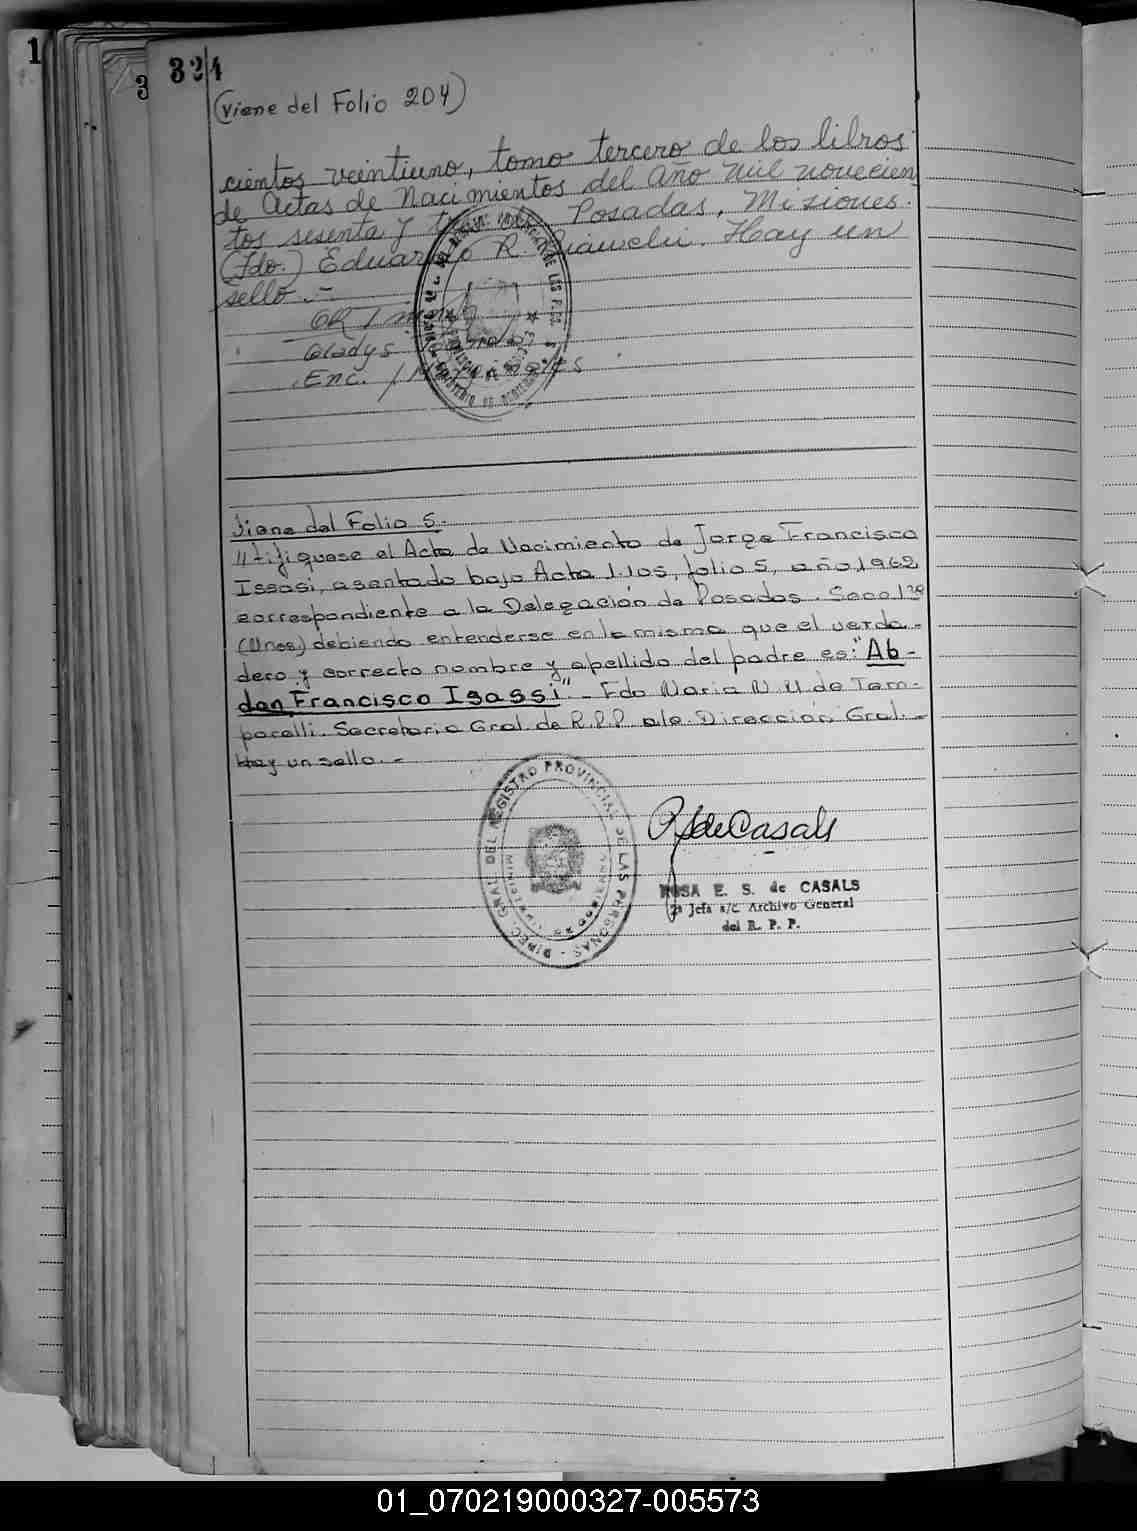 1
3
324
(Viene del Folio 204)
cientos veintiuno, tomo tercero de los libros
de Actas de Nacimientos del año mil novecien
tos sesenta y Posadas, Misiones.
(Fdo.) Eduardo R. Hay un
sello.-
Gladys
Enc.
Viene del Folio 5.-
tifiquese el Acta de Nacimiento de Jorge Francisco
Issasi, asentado bajo Acta 1.105, folio 5, año 1962
correspondiente a la Delegación de Posadas. Secc 1ra
(Unos) debiendo entenderse en la misma que el verda-
dero y correcto nombre y apellido del padre es: "Ab-
don Francisco Isassi".- Fdo Maria N. U. de Tam-
parelli. Secretaria Gral. de R.P.P. a/c. Dirección Gral.-
Hay un sello.-
DIREC. GRAL. DEL REGISTRO PROVINCIAL DE LAS PERSONAS
de Casals
ROSA E. S. de CASALS
2a Jefa a/c Archivo General
del R. P. P.
01_070219000327-005573